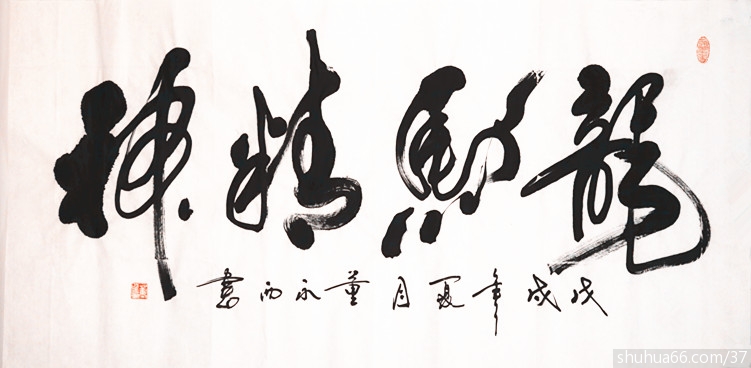 龍馬精神
戊戌年夏月董永西書
shuhua66.com/37